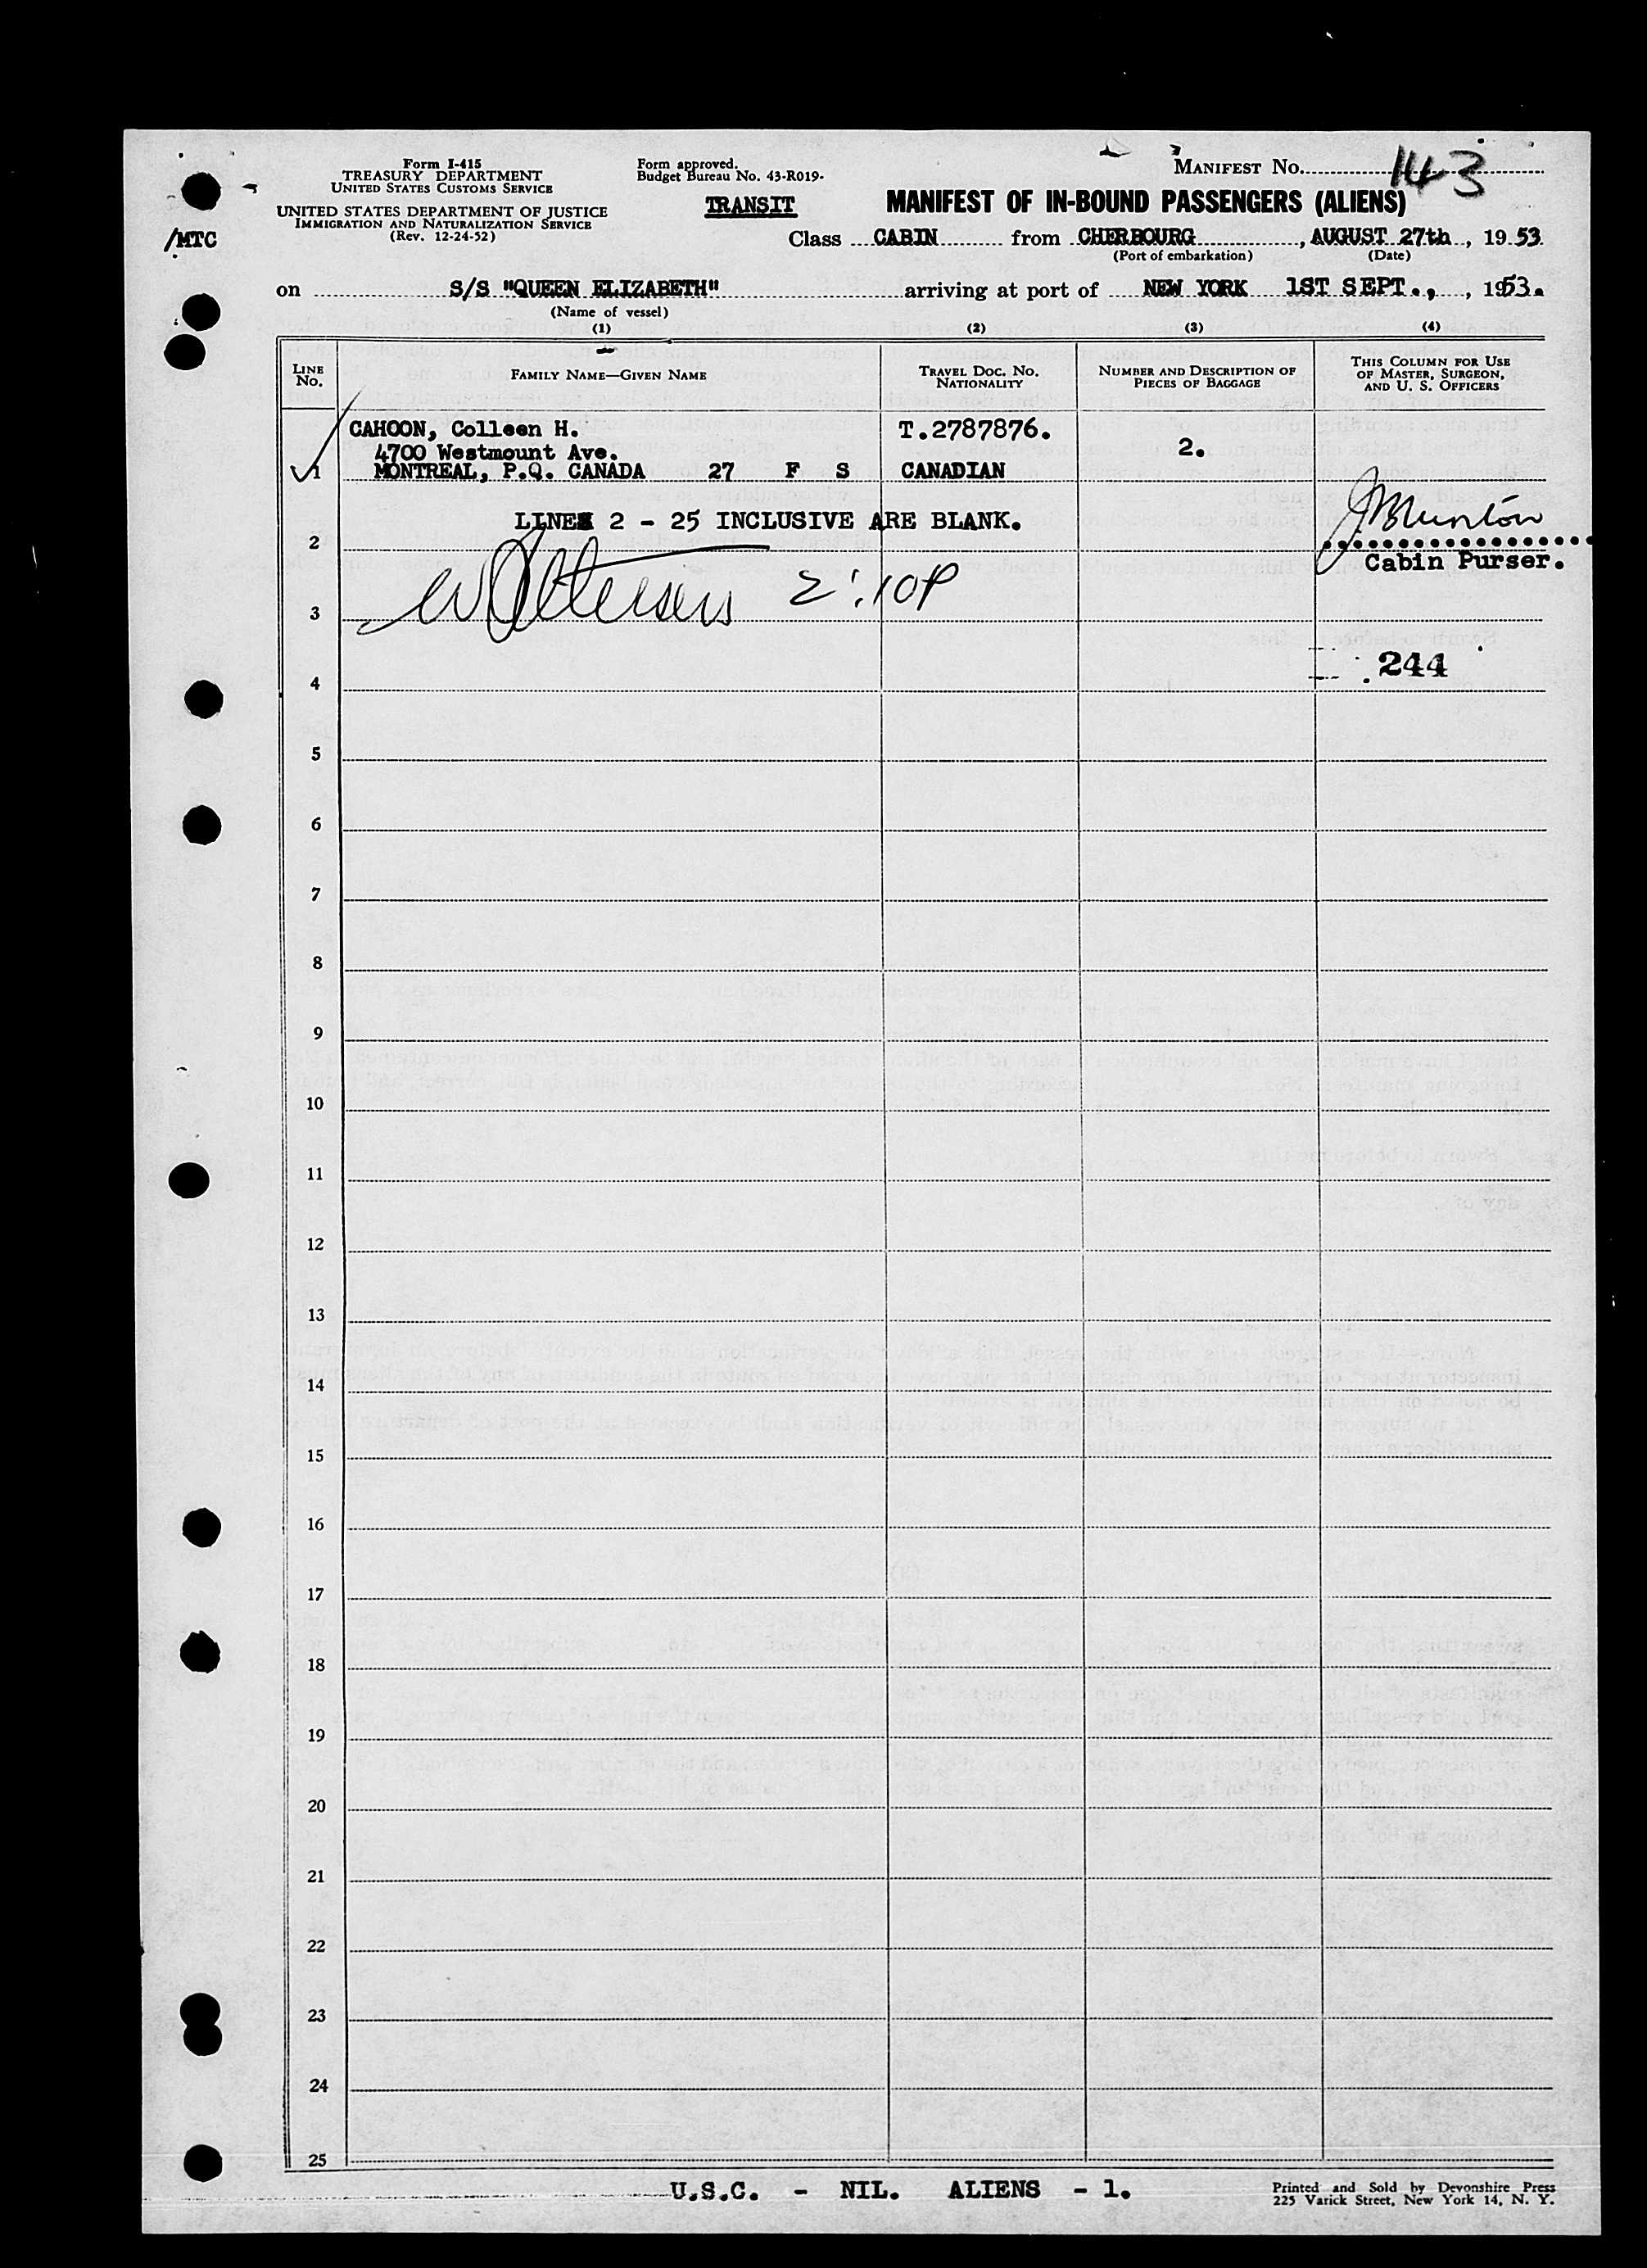 Form I-415
TREASURY DEPARTMENT
UNITED STATES CUSTOMS SERVICE
UNITED STATES DEPARTMENT OF JUSTICE
IMMIGRATION AND NATURALIZATION SERVICE
(Rev. 12-24-52)
/MTC
Form approved.
Budget Bureau No. 43-R019-
TRANSIT
MANIFEST No. 143
MANIFEST OF IN-BOUND PASSENGERS (ALIENS)
Class CABIN from CHERBOURG, AUGUST 27th, 19 53
(Port of embarkation) (Date)
on S/S "QUEEN ELIZABETH" arriving at port of NEW YORK 1ST SEPT., , 1953.
(Name of vessel)
(1) (2) (3) (4)
LINE No. FAMILY NAME—GIVEN NAME TRAVEL DOC. NO. NATIONALITY NUMBER AND DESCRIPTION OF PIECES OF BAGGAGE THIS COLUMN FOR USE OF MASTER, SURGEON, AND U. S. OFFICERS
CAHOON, Colleen H. T.2787876.
4700 Westmount Ave. 2.
1 MONTREAL, P.Q. CANADA 27 F S CANADIAN
LINES 2 - 25 INCLUSIVE ARE BLANK.
2
Cabin Purser.
2:10P
3
244
4
5
6
7
8
9
10
11
12
13
14
15
16
17
18
19
20
21
22
23
24
25
U.S.C. - NIL. ALIENS - 1.
Printed and Sold by Devonshire Press
225 Varick Street, New York 14, N. Y.